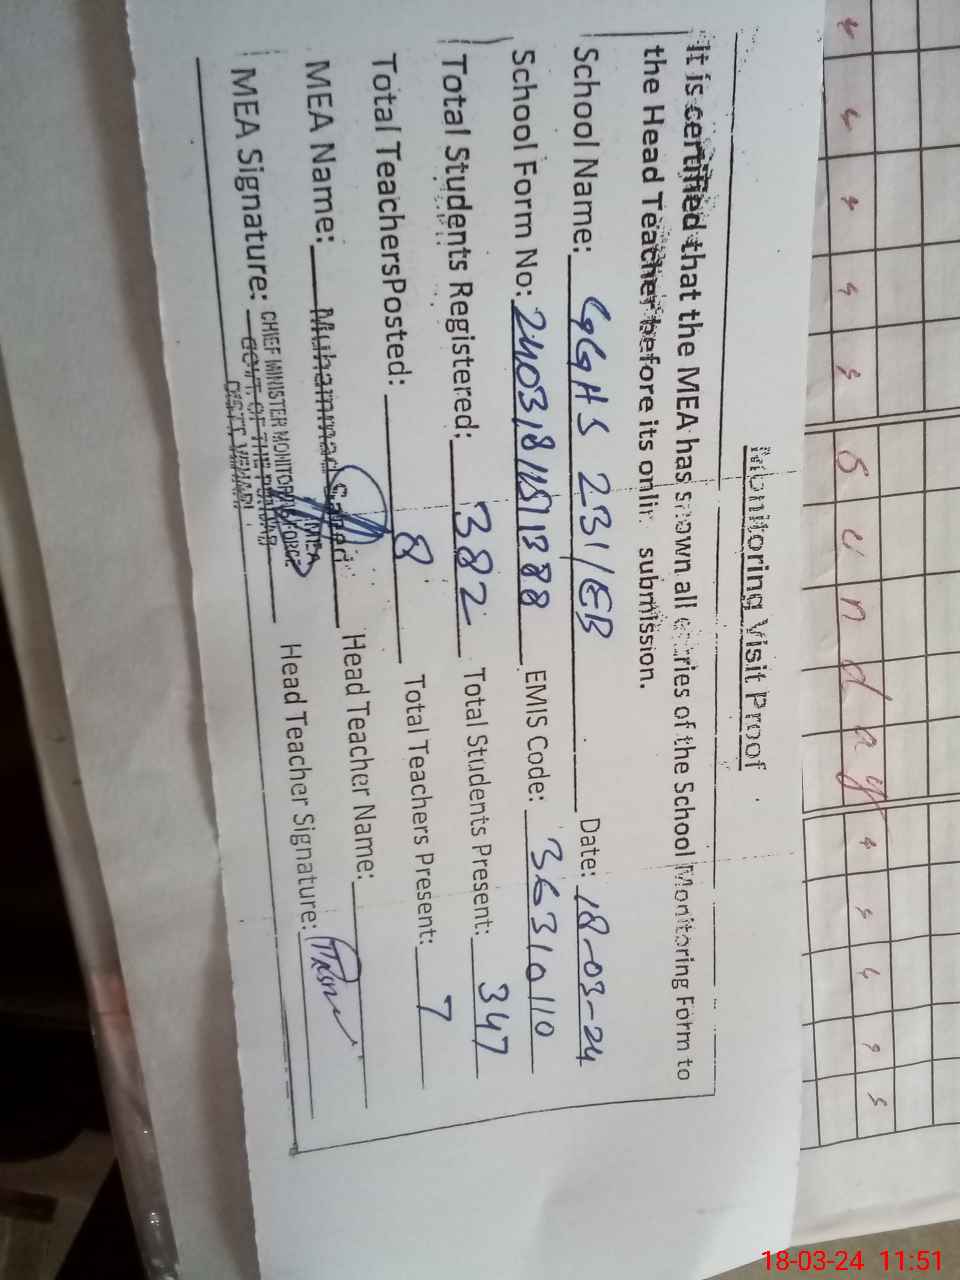 Monitoring Visit Proof
It is certified that the MEA has shown all entries of the School Monitoring Form to
the Head Teacher before its onlin submission.
School Name: GGHS 231/EB Date: 18-03-24
School Form No: EMIS Code: 36310110
Total Students Registered: 382 Total Students Present: 347
Total TeachersPosted: 8 Total Teachers Present: 7
MEA Name: Muhammad Saeed Head Teacher Name:
MEA Signature: Head Teacher Signature:
(MEA)
CHIEF MINISTER MONITORING FORCE
GOVT. OF THE PUNJAB
DISTT. VEHARI
Sunday
18-03-24 11:51